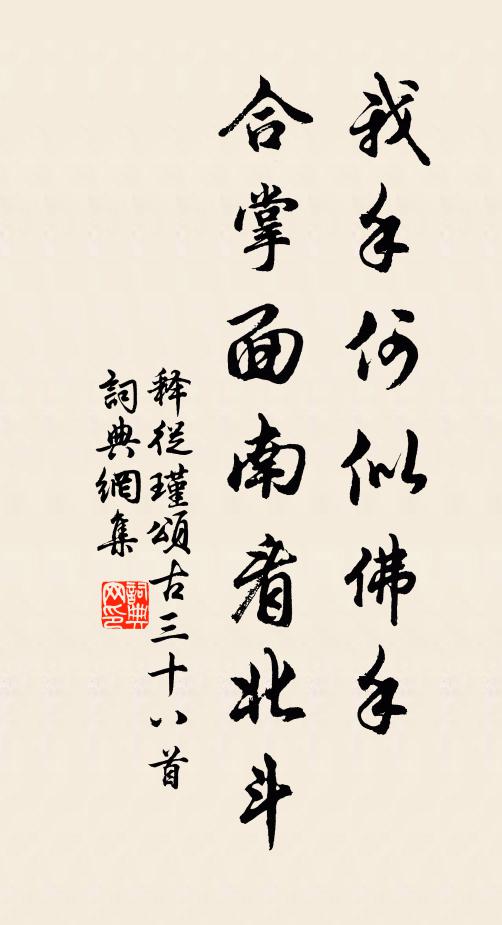 我手何似佛手
合掌面南看北斗
释從瑾頌古三十八首
詞典網集
詞典网印